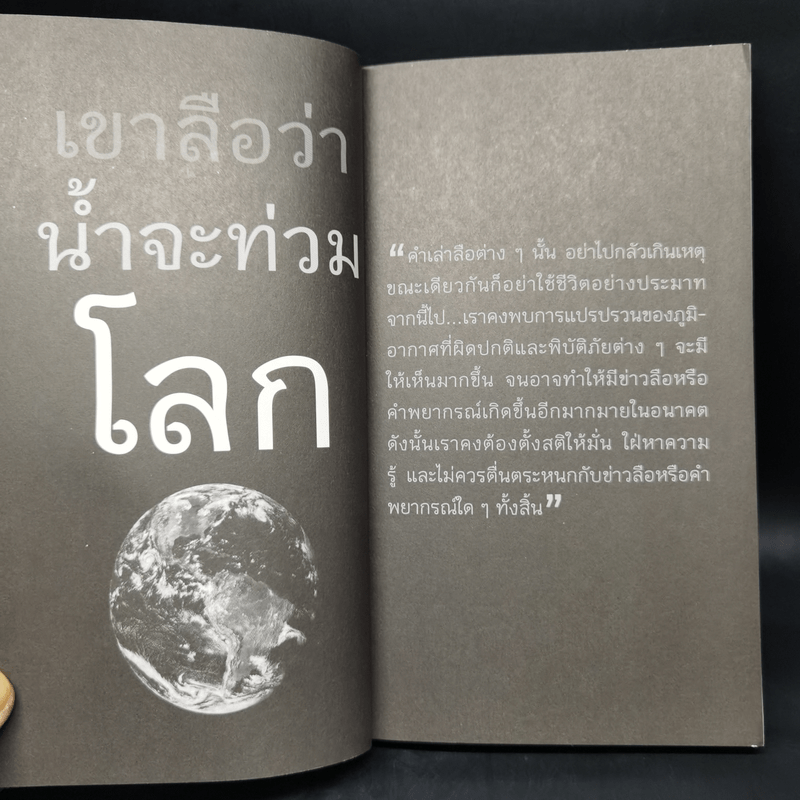 เขาลือว่า
น้ำจะท่วม
โลก
“คำเล่าลือต่าง ๆ นั้น อย่าไปกลัวเกินเหตุ
ขณะเดียวกันก็อย่าใช้ชีวิตอย่างประมาท
จากนี้ไป...เราคงพบการแปรปรวนของภูมิ-
อากาศที่ผิดปกติและพิบัติภัยต่าง ๆ จะมี
ให้เห็นมากขึ้น จนอาจทำให้มีข่าวลือหรือ
คำพยากรณ์เกิดขึ้นอีกมากมายในอนาคต
ดังนั้นเราคงต้องตั้งสติให้มั่น ใฝ่หาความ
รู้ และไม่ควรตื่นตระหนกกับข่าวลือหรือคำ
พยากรณ์ใด ๆ ทั้งสิ้น”